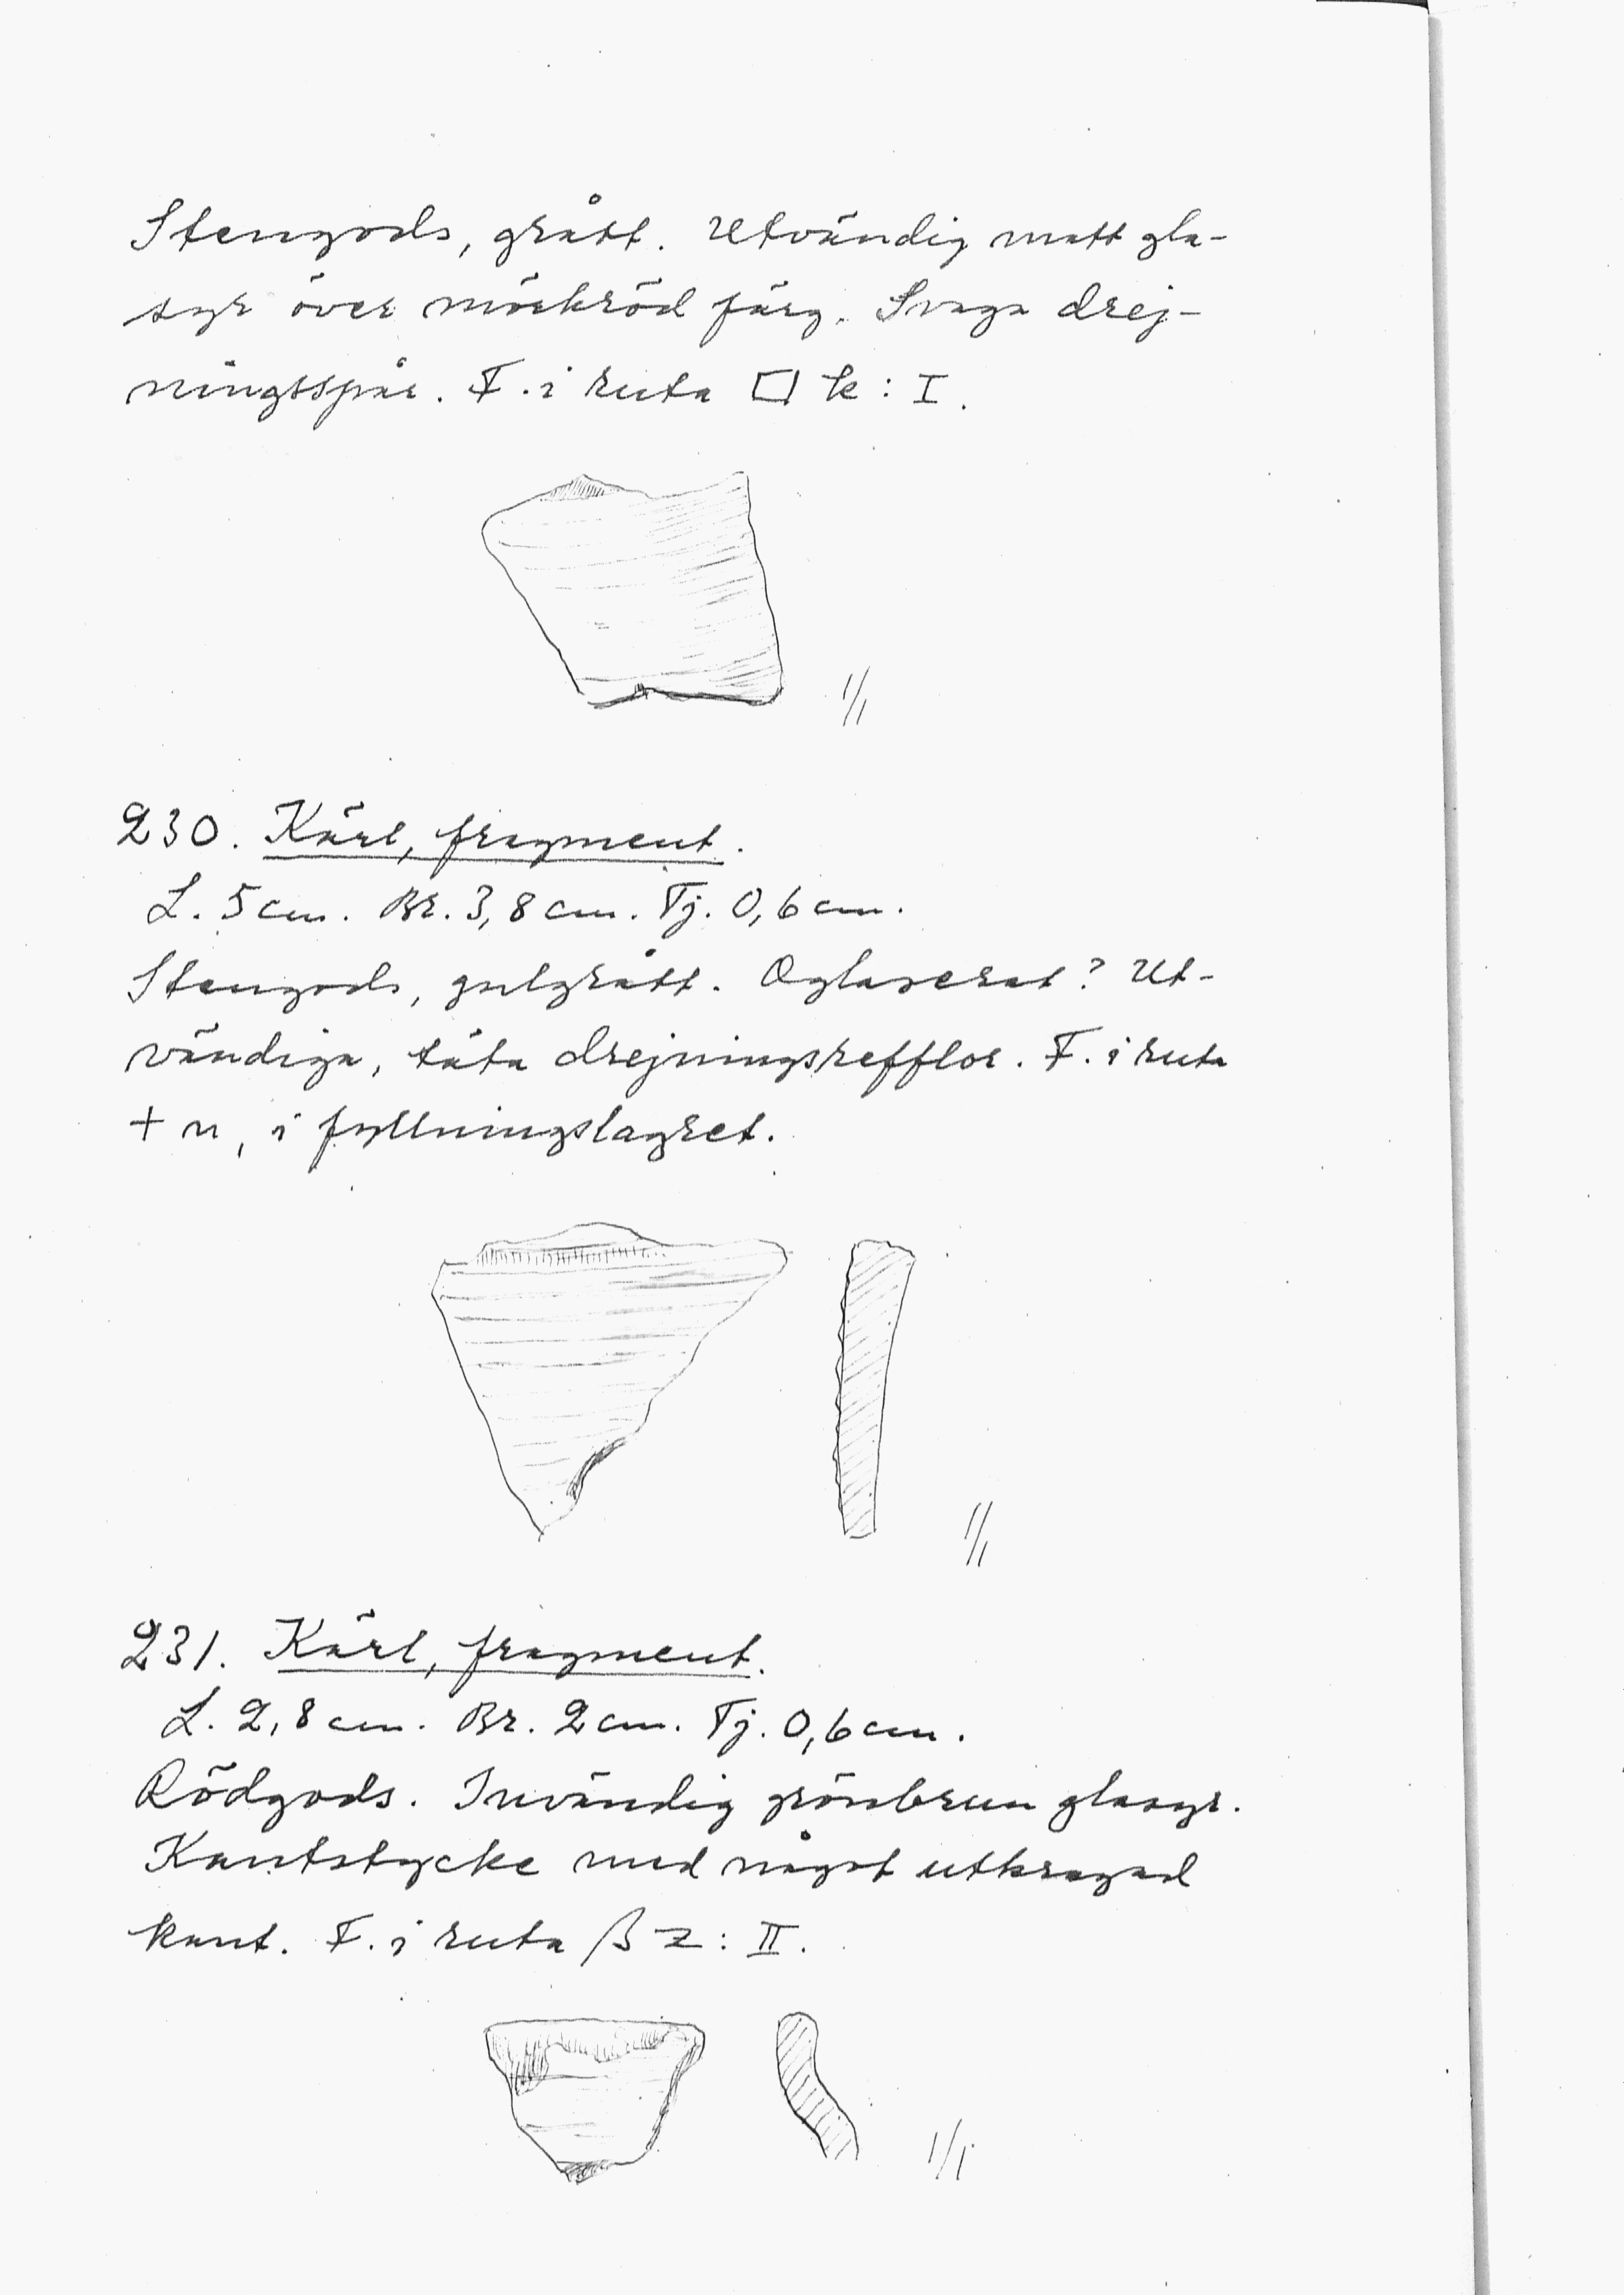 Stengods, grått. Utvändig matt gla-
syr över mörkröd färg. Svaga drej-
ningsspår. F. i ruta □ k : I.
1/1
230. Kärl, fragment.
L. 5 cm. Br. 3,8 cm. Tj. 0,6 cm.
Stengods, gulgrått. Oglaserat? Ut-
vändiga, täta drejningsrefflor. F. i ruta
+ n, i fyllningslagret.
1/1
231. Kärl, fragment.
L. 2,8 cm. Br. 2 cm. Tj. 0,6 cm.
Rödgods. Invändig grönbrun glasyr.
Kantstycke med något utkragad
kant. F. i ruta β z : II.
1/1